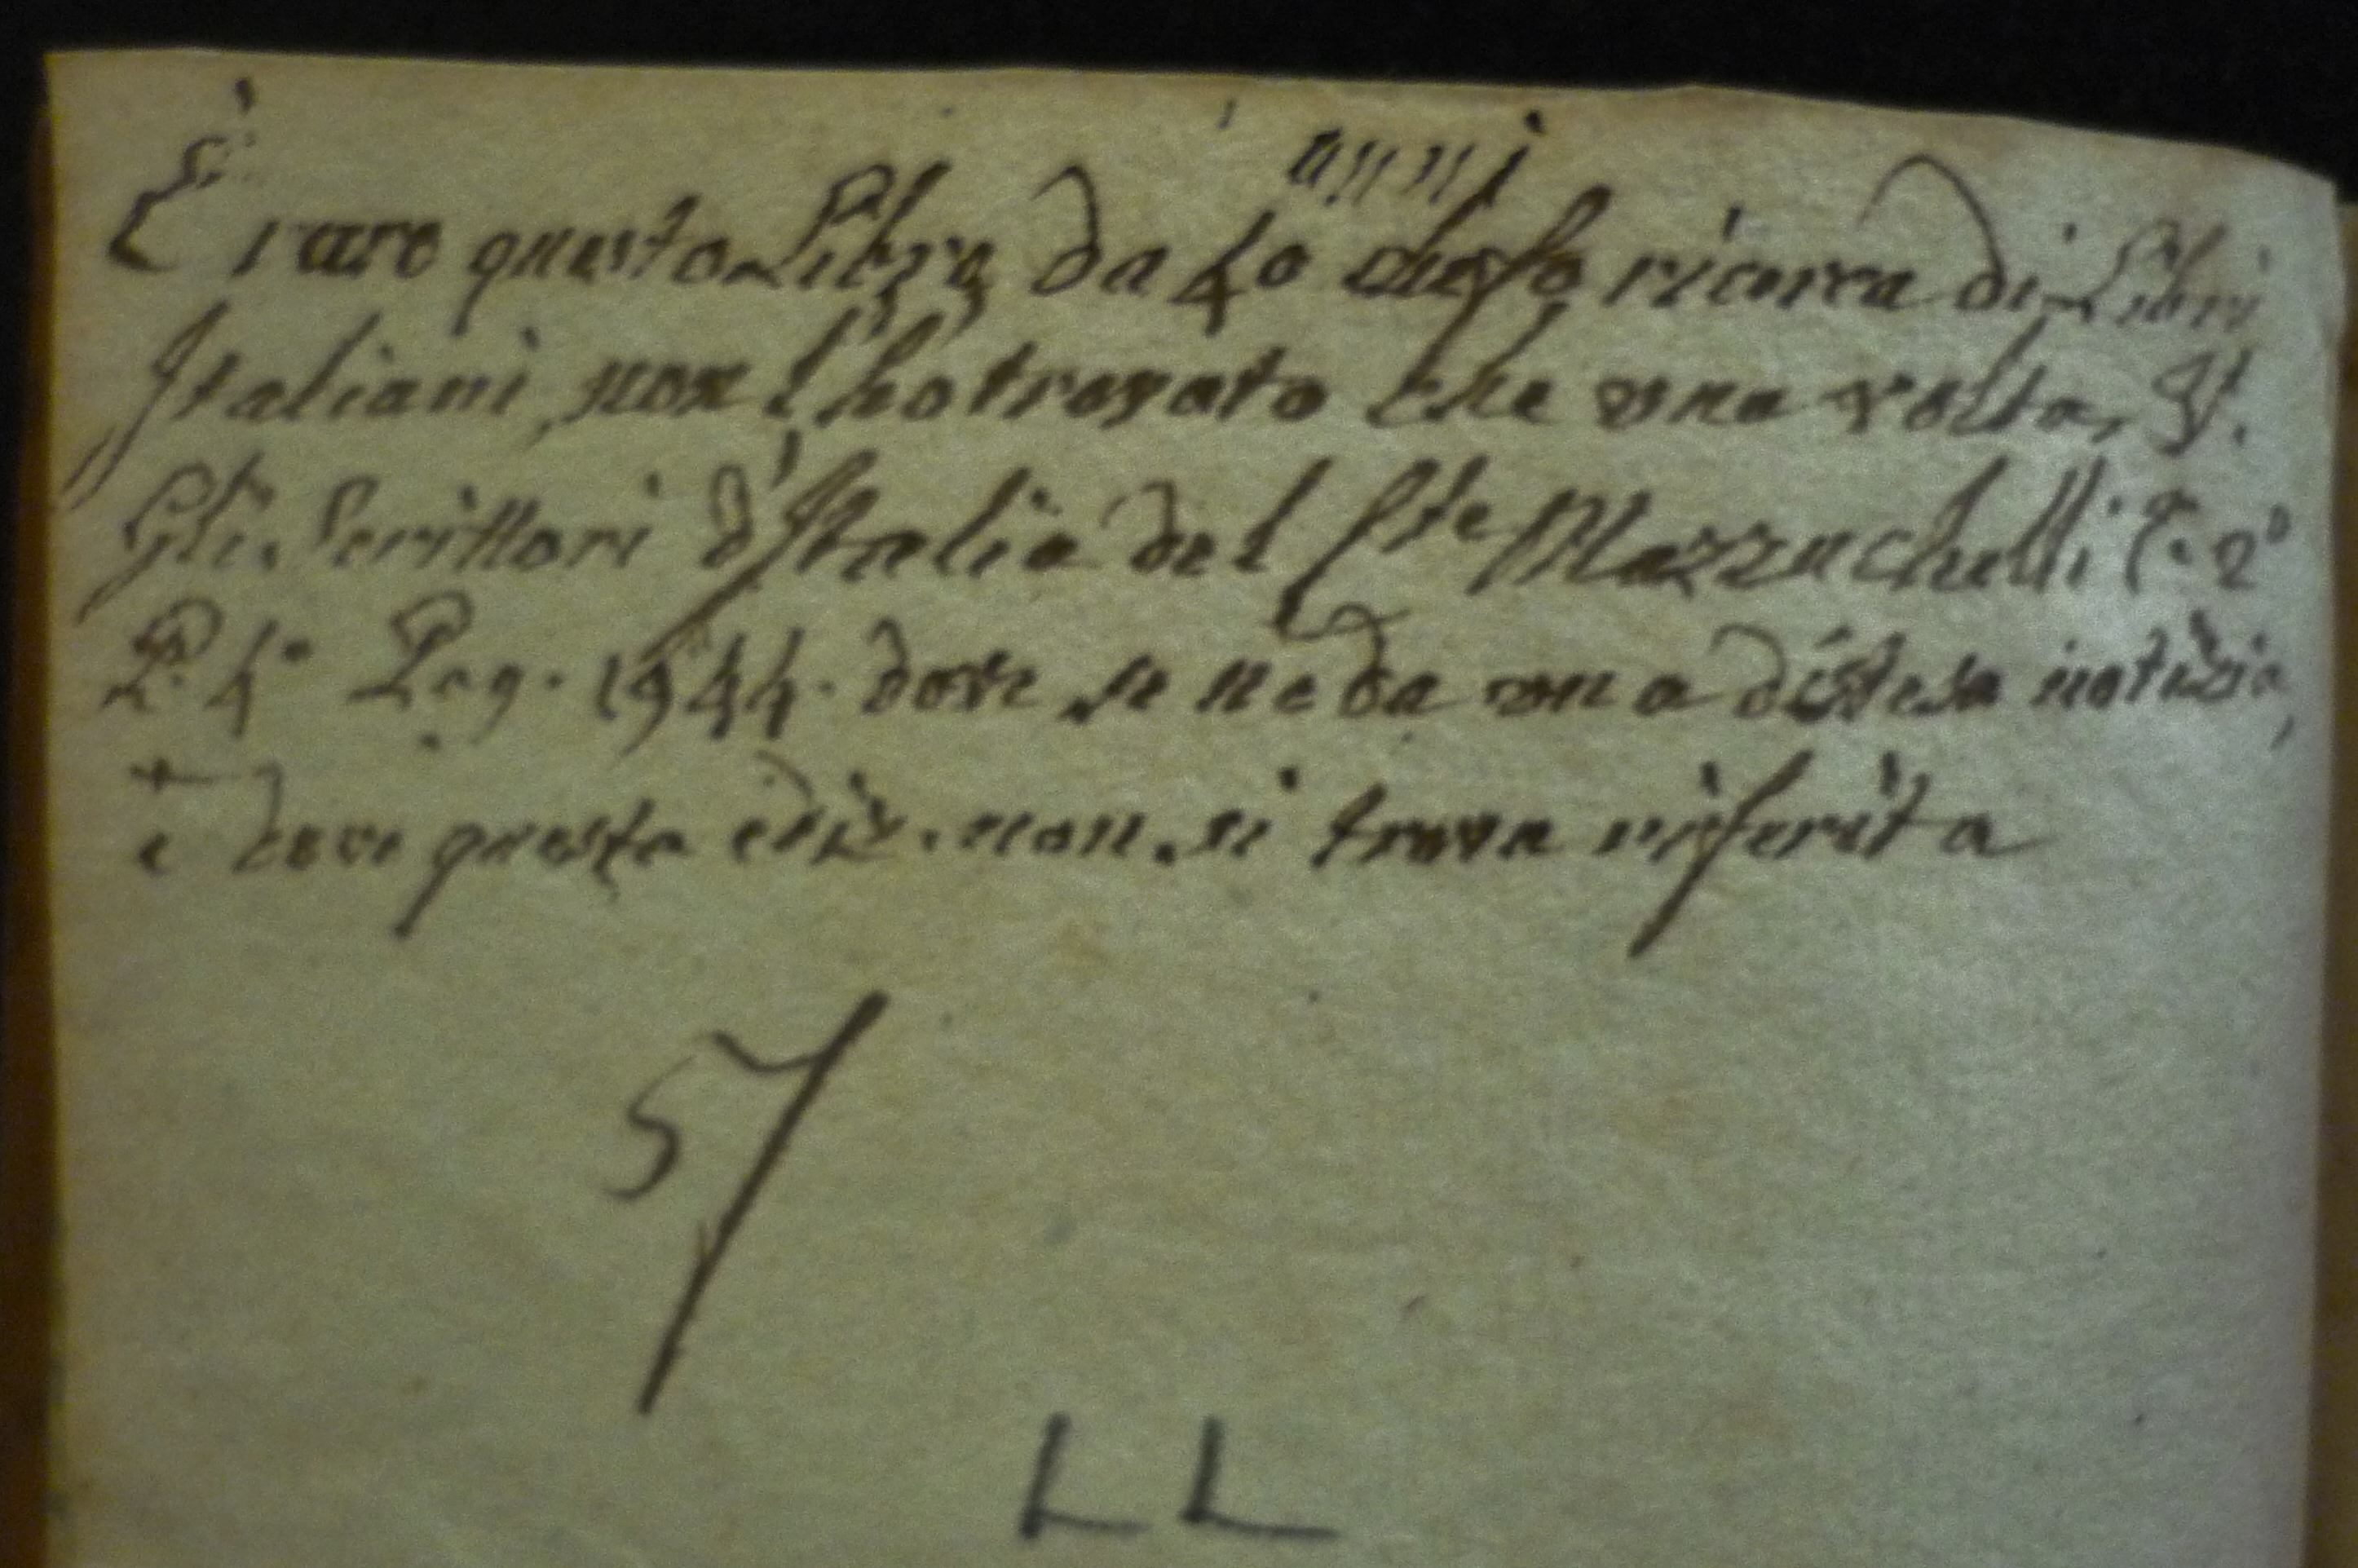 anni
È raro questo Libro da 40 che fo ricerca di Libri
Italiani, non l'ho trovato che una volta, V.
Gli Scrittori d'Italia del Cte Mazzuchelli T. 2º
P. 4ª Pag. 1944. dove se ne da una distesa notizia,
e dove questa ediz. non si trova riferita
57
LL